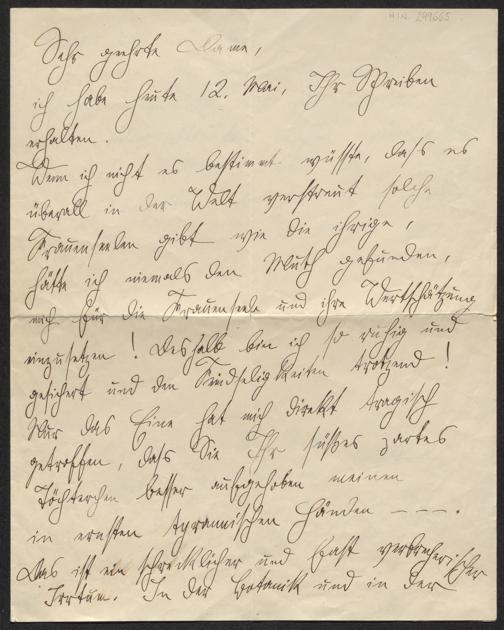 H.I.N. 299665
Sehr geehrte Dame,
ich habe heute 12. Mai, Ihr Schreiben
erhalten.
Wenn ich nicht es bestimmt wüsste, dass es
überall in der Welt verstreut solche
Frauenseelen gibt wie die ihrige,
hätte ich niemals den Muth gefunden,
mich für die Frauenseele und ihre Wertschätzung
einzusetzen! Deshalb bin ich so ruhig und
gesichert und den Feindseligkeiten trotzend!
Nur das Eine hat mich direkt tragisch
getroffen, dass Sie Ihr süßes zartes
Töchterchen besser aufgehoben meinen
in ernsten tyrannischen Händen — — —.
Das ist ein schrecklicher und fast verbrecherischer
Irrtum. In der Botanik und in der